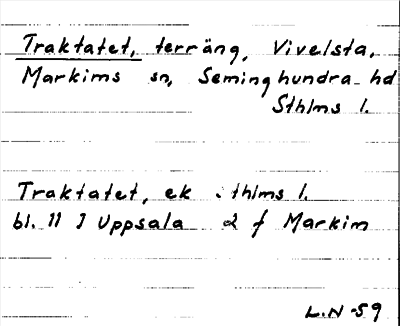 Traktatet, terräng, Vivelsta,
Markims sn, Seminghundra hd
Sthlms l.
Traktatet, ek Sthlms l.
bl. 11 I Uppsala d f Markim
L.N -59